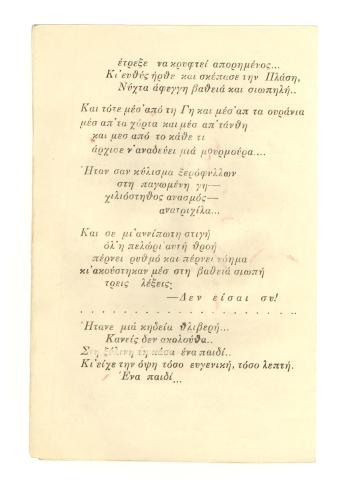 έτρεξε να κρυφτεί απορημένος...
Κι' ευθύς ήρθε και σκέπασε την Πλάση,
Νύχτα άφεγγη βαθειά και σιωπηλή..
Και τότε μέσ' από τη Γη και μέσ' απ τα ουράνια
μέσ απ' τα χόρτα και μέσ απ' τάνθη
και μεσ από το κάθε τι
άρχισε ν' αναδεύει μιά μουρμούρα....
Ήταν σαν κύλισμα ξερόφυλλων
στη παγωμένη γη—
χιλιόστηθος ανασμός—
ανατριχίλα...
Και σε μι' ανείπωτη στιγή
όλ' η πελώρι' αυτή θροή
πέρνει ρυθμό και πέρνει νόημα
κι' ακούστηκαν μέσ στη βαθειά σιωπή
τρεις λέξεις:
—Δεν είσαι συ!
Ήτανε μιά κηδεία θλιβερή...
Κανείς δεν ακολούθα..
Στη ξύλινη τη κάσα ένα παιδί..
Κι' είχε την όψη τόσο ευγενική, τόσο λεπτή.
Ένα παιδί...